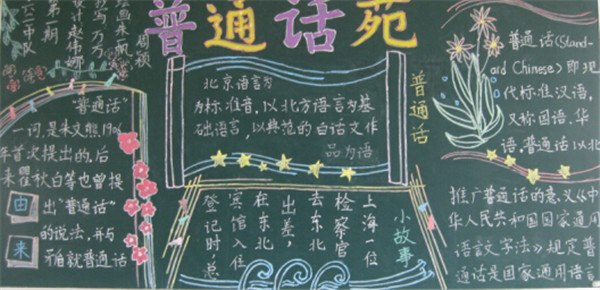 普通话苑
周颖
绘画朱帆
设计赵伟娜
第一期
“普通话”
一词,是朱文熊1906
年首次提出的,后
来瞿秋白等也曾提
出“普通话”
的说法,并与
矛盾就普通话
由来
北京语言为
为标准音,以北方语言为基
础语言,以典范的白话文作
品为语
普通话
小故事
上海一位
检察官
去东北
出差,
在东北
宾馆入住
登记时,总
普通话(Stand-
ard Chinese)即现
代标准汉语,
又称国语、华
语,普通话以北
推广普通话的意义《中
华人民共和国国家通用
语言文字法》规定普
通话是国家通用语言